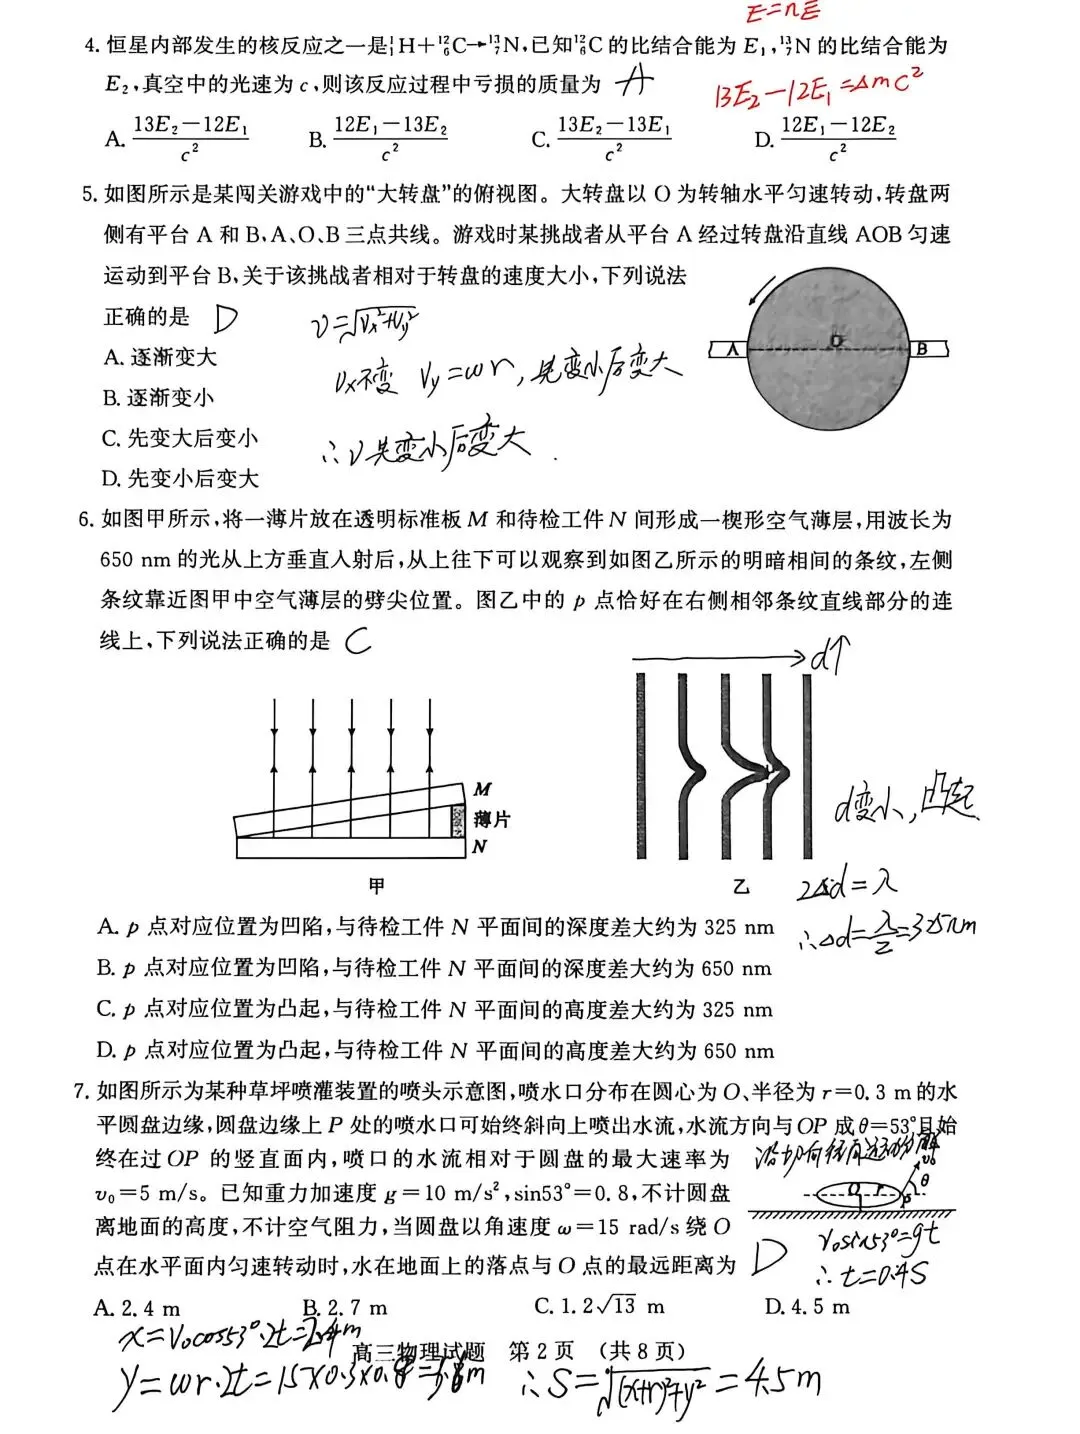 E=nE
4. 恒星内部发生的核反应之一是¹₁H+¹²₆C→¹³₇N,已知¹²₆C的比结合能为E₁,¹³₇N的比结合能为
E₂,真空中的光速为c,则该反应过程中亏损的质量为 A
13E₂-12E₁=Δmc²
A. (13E₂-12E₁)/c² B. (12E₁-13E₂)/c² C. (13E₂-13E₁)/c² D. (12E₁-12E₂)/c²
5. 如图所示是某闯关游戏中的“大转盘”的俯视图。大转盘以O为转轴水平匀速转动,转盘两
侧有平台A和B,A、O、B三点共线。游戏时某挑战者从平台A经过转盘沿直线AOB匀速
运动到平台B,关于该挑战者相对于转盘的速度大小,下列说法
正确的是 D
v=√(vₓ²+v_y²)
A. 逐渐变大
vₓ不变 v_y=ωr,先变小后变大
B. 逐渐变小
C. 先变大后变小
∴v先变小后变大.
D. 先变小后变大
A O B
6. 如图甲所示,将一薄片放在透明标准板M和待检工件N间形成一楔形空气薄层,用波长为
650 nm的光从上方垂直入射后,从上往下可以观察到如图乙所示的明暗相间的条纹,左侧
条纹靠近图甲中空气薄层的劈尖位置。图乙中的p点恰好在右侧相邻条纹直线部分的连
线上,下列说法正确的是 C
d↑
M
薄片
N
甲
乙
d变小,凸起
2Δd=λ
∴Δd=λ/2=325nm
A. p点对应位置为凹陷,与待检工件N平面间的深度差大约为325 nm
B. p点对应位置为凹陷,与待检工件N平面间的深度差大约为650 nm
C. p点对应位置为凸起,与待检工件N平面间的高度差大约为325 nm
D. p点对应位置为凸起,与待检工件N平面间的高度差大约为650 nm
7. 如图所示为某种草坪喷灌装置的喷头示意图,喷水口分布在圆心为O、半径为r=0.3 m的水
平圆盘边缘,圆盘边缘上P处的喷水口可始终斜向上喷出水流,水流方向与OP成θ=53°且始
终在过OP的竖直面内,喷口的水流相对于圆盘的最大速率为
v₀=5 m/s。已知重力加速度g=10 m/s²,sin53°=0.8,不计圆盘
离地面的高度,不计空气阻力,当圆盘以角速度ω=15 rad/s绕O
点在水平面内匀速转动时,水在地面上的落点与O点的最远距离为 D
O r P v₀ θ
v₀sin53°=gt
∴t=0.4s
A. 2.4 m B. 2.7 m C. 1.2√13 m D. 4.5 m
x=v₀cos53°·2t=2.4m
高三物理试题 第2页 (共8页)
y=ωr·2t=15×0.3×0.8=3.6m
∴S=√((x+r)²+y²)=4.5m